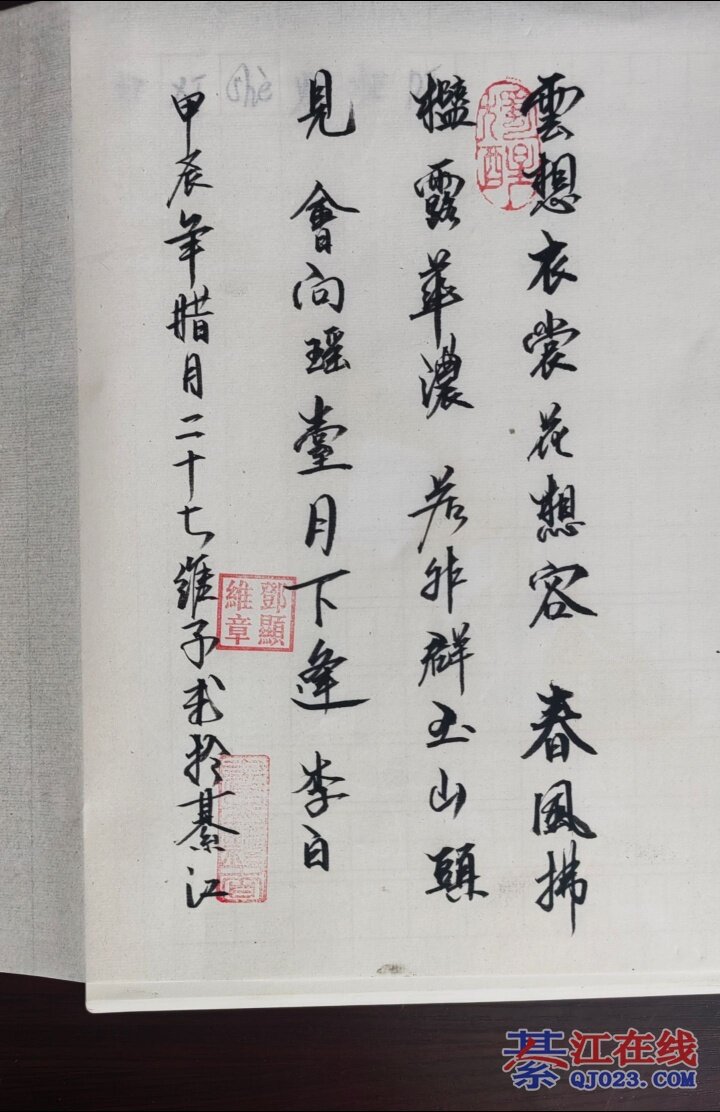 雲想衣裳花想容 春風拂
檻露華濃 若非群玉山頭
見 會向瑶臺月下逢 李白
甲辰年腊月二十七維子書於綦江
鄧顯
維章
shè
綦江在线
QJ023.COM